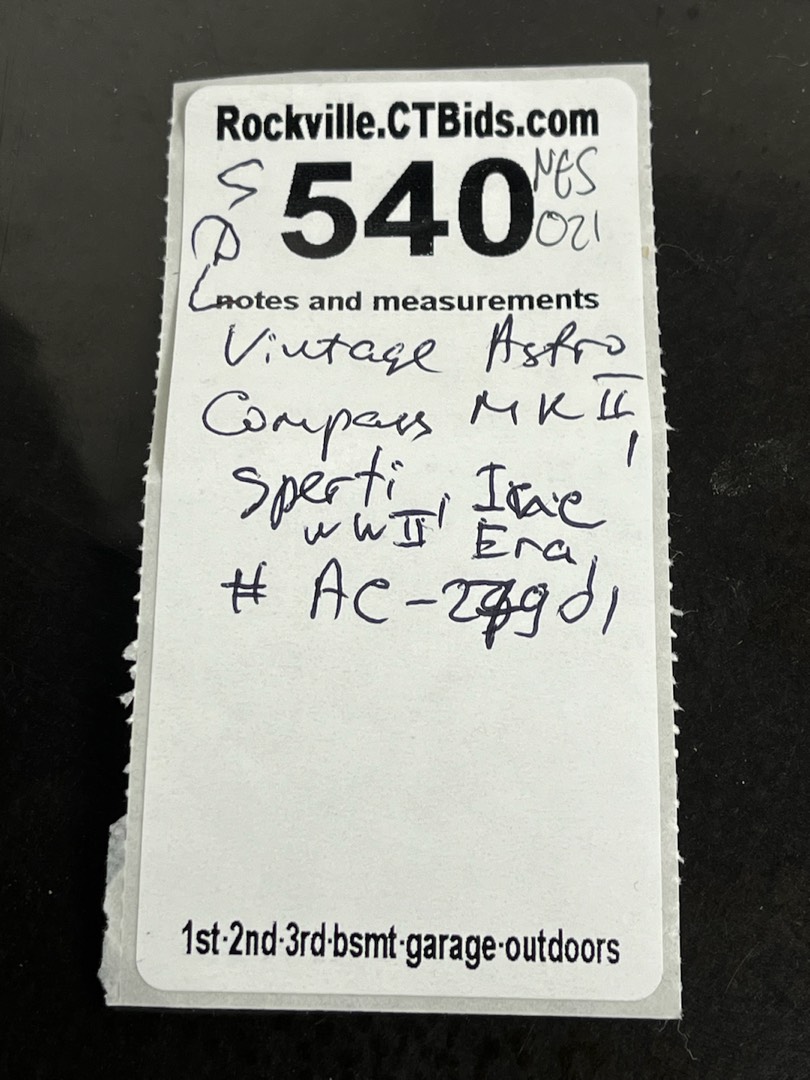 Rockville.CTBids.com
540
NES
021
notes and measurements
Vintage Astro
Compass MK II,
Sperti, Inc
WW II Era,
# AC-
1st·2nd·3rd·bsmt·garage·outdoors